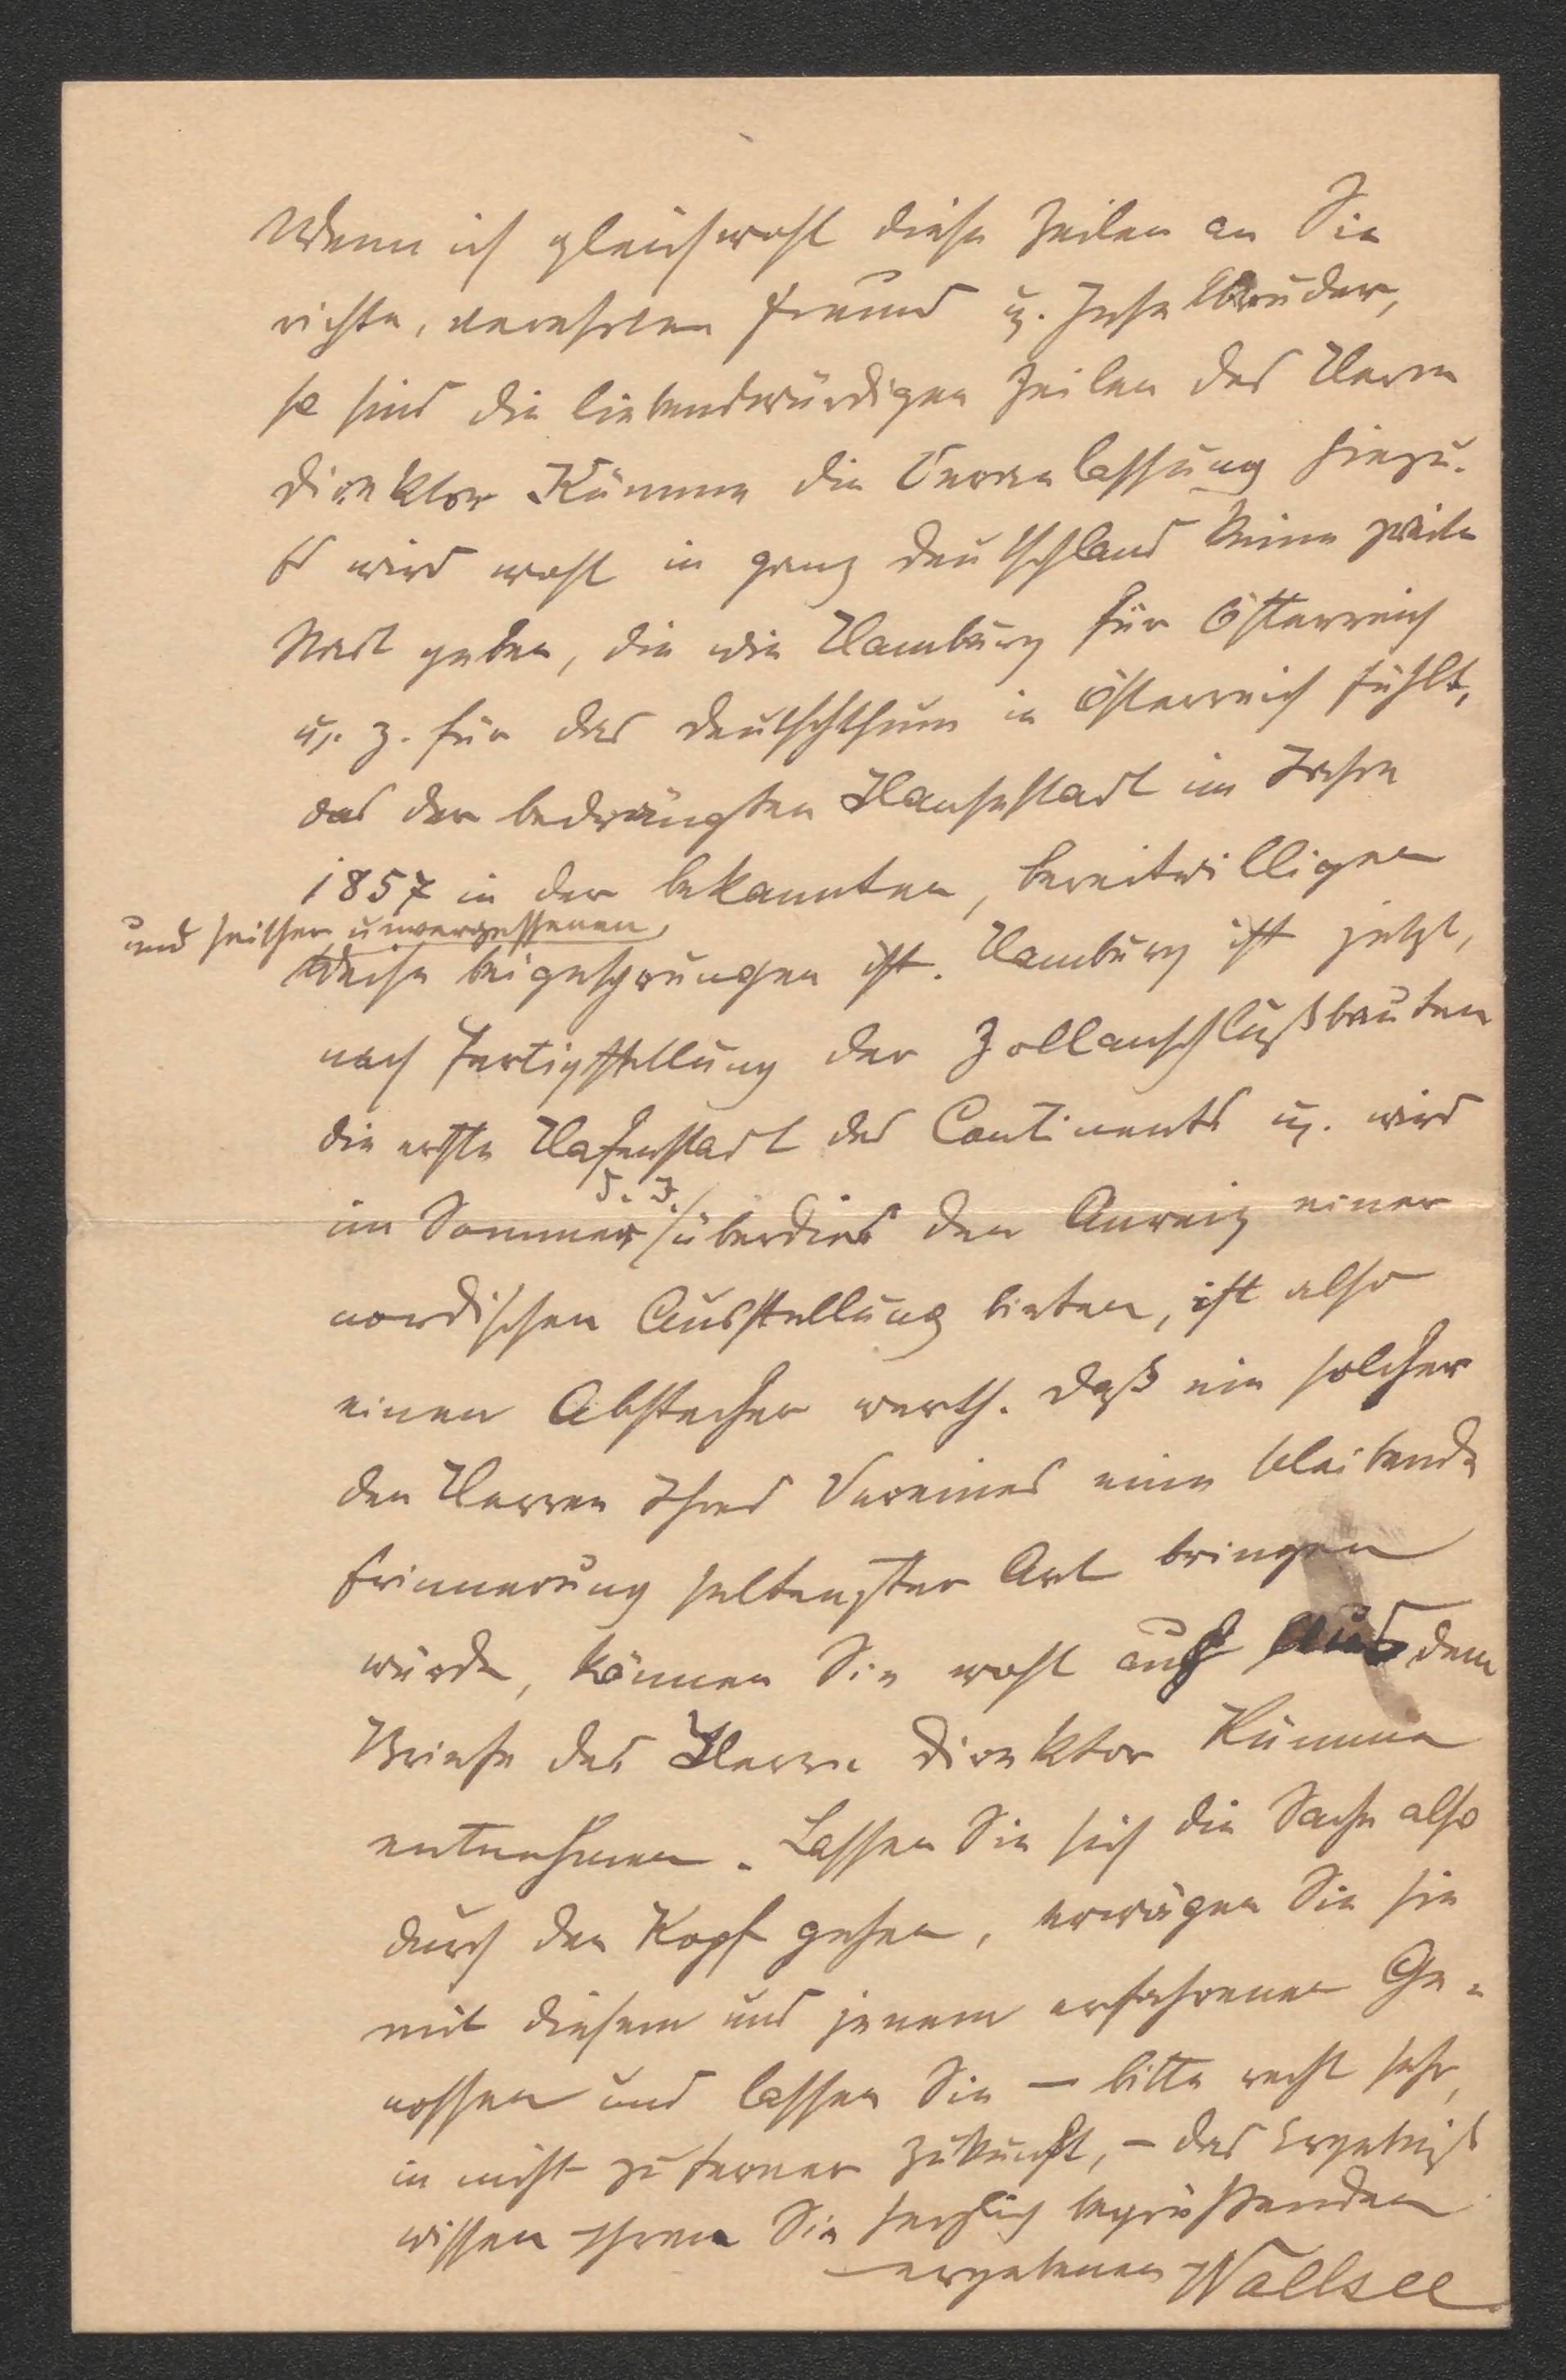 Wenn ich gleichwohl diese Zeilen an Sie
richte, verehrter Freund u. Inselbruder,
so sind die liebenswürdigen Zeilen des Herrn
Direktor Kümme die Veranlassung hiezu.
Es wird wohl in ganz Deutschland keine zweite
Stadt geben, die wie Hamburg für Österreich
u. z. für das Deutschthum in Österreich fühlt,
das der bedrängten Hansestadt im Jahre
1857 in der bekannten, bereitwilligen
und seither unvergessenen,
Weise beigesprungen ist. Hamburg ist jetzt,
nach Fertigstellung der Zollanschlußbauten
die erste Hafenstadt des Continents u. wird
im Sommer d. J. überdies den Anreiz einer
nordischen Ausstellung bieten, ist also
einen Abstecher werth. Daß ein solcher
den Herren Ihres Vereines eine bleibende
Erinnerung seltenster Art bringen
würde, können Sie wohl auch aus dem
Briefe des Herrn Direktor Kümme
entnehmen. Lassen Sie sich die Sache also
durch den Kopf gehen, erwägen Sie sie
mit diesem und jenem erfahrenen Ge-
nossen und lassen Sie — bitte recht sehr,
in nicht zu ferner Zukunft, — das Ergebniß
wissen Ihren Sie herzlich begrüßenden
ergebenen Wallsee